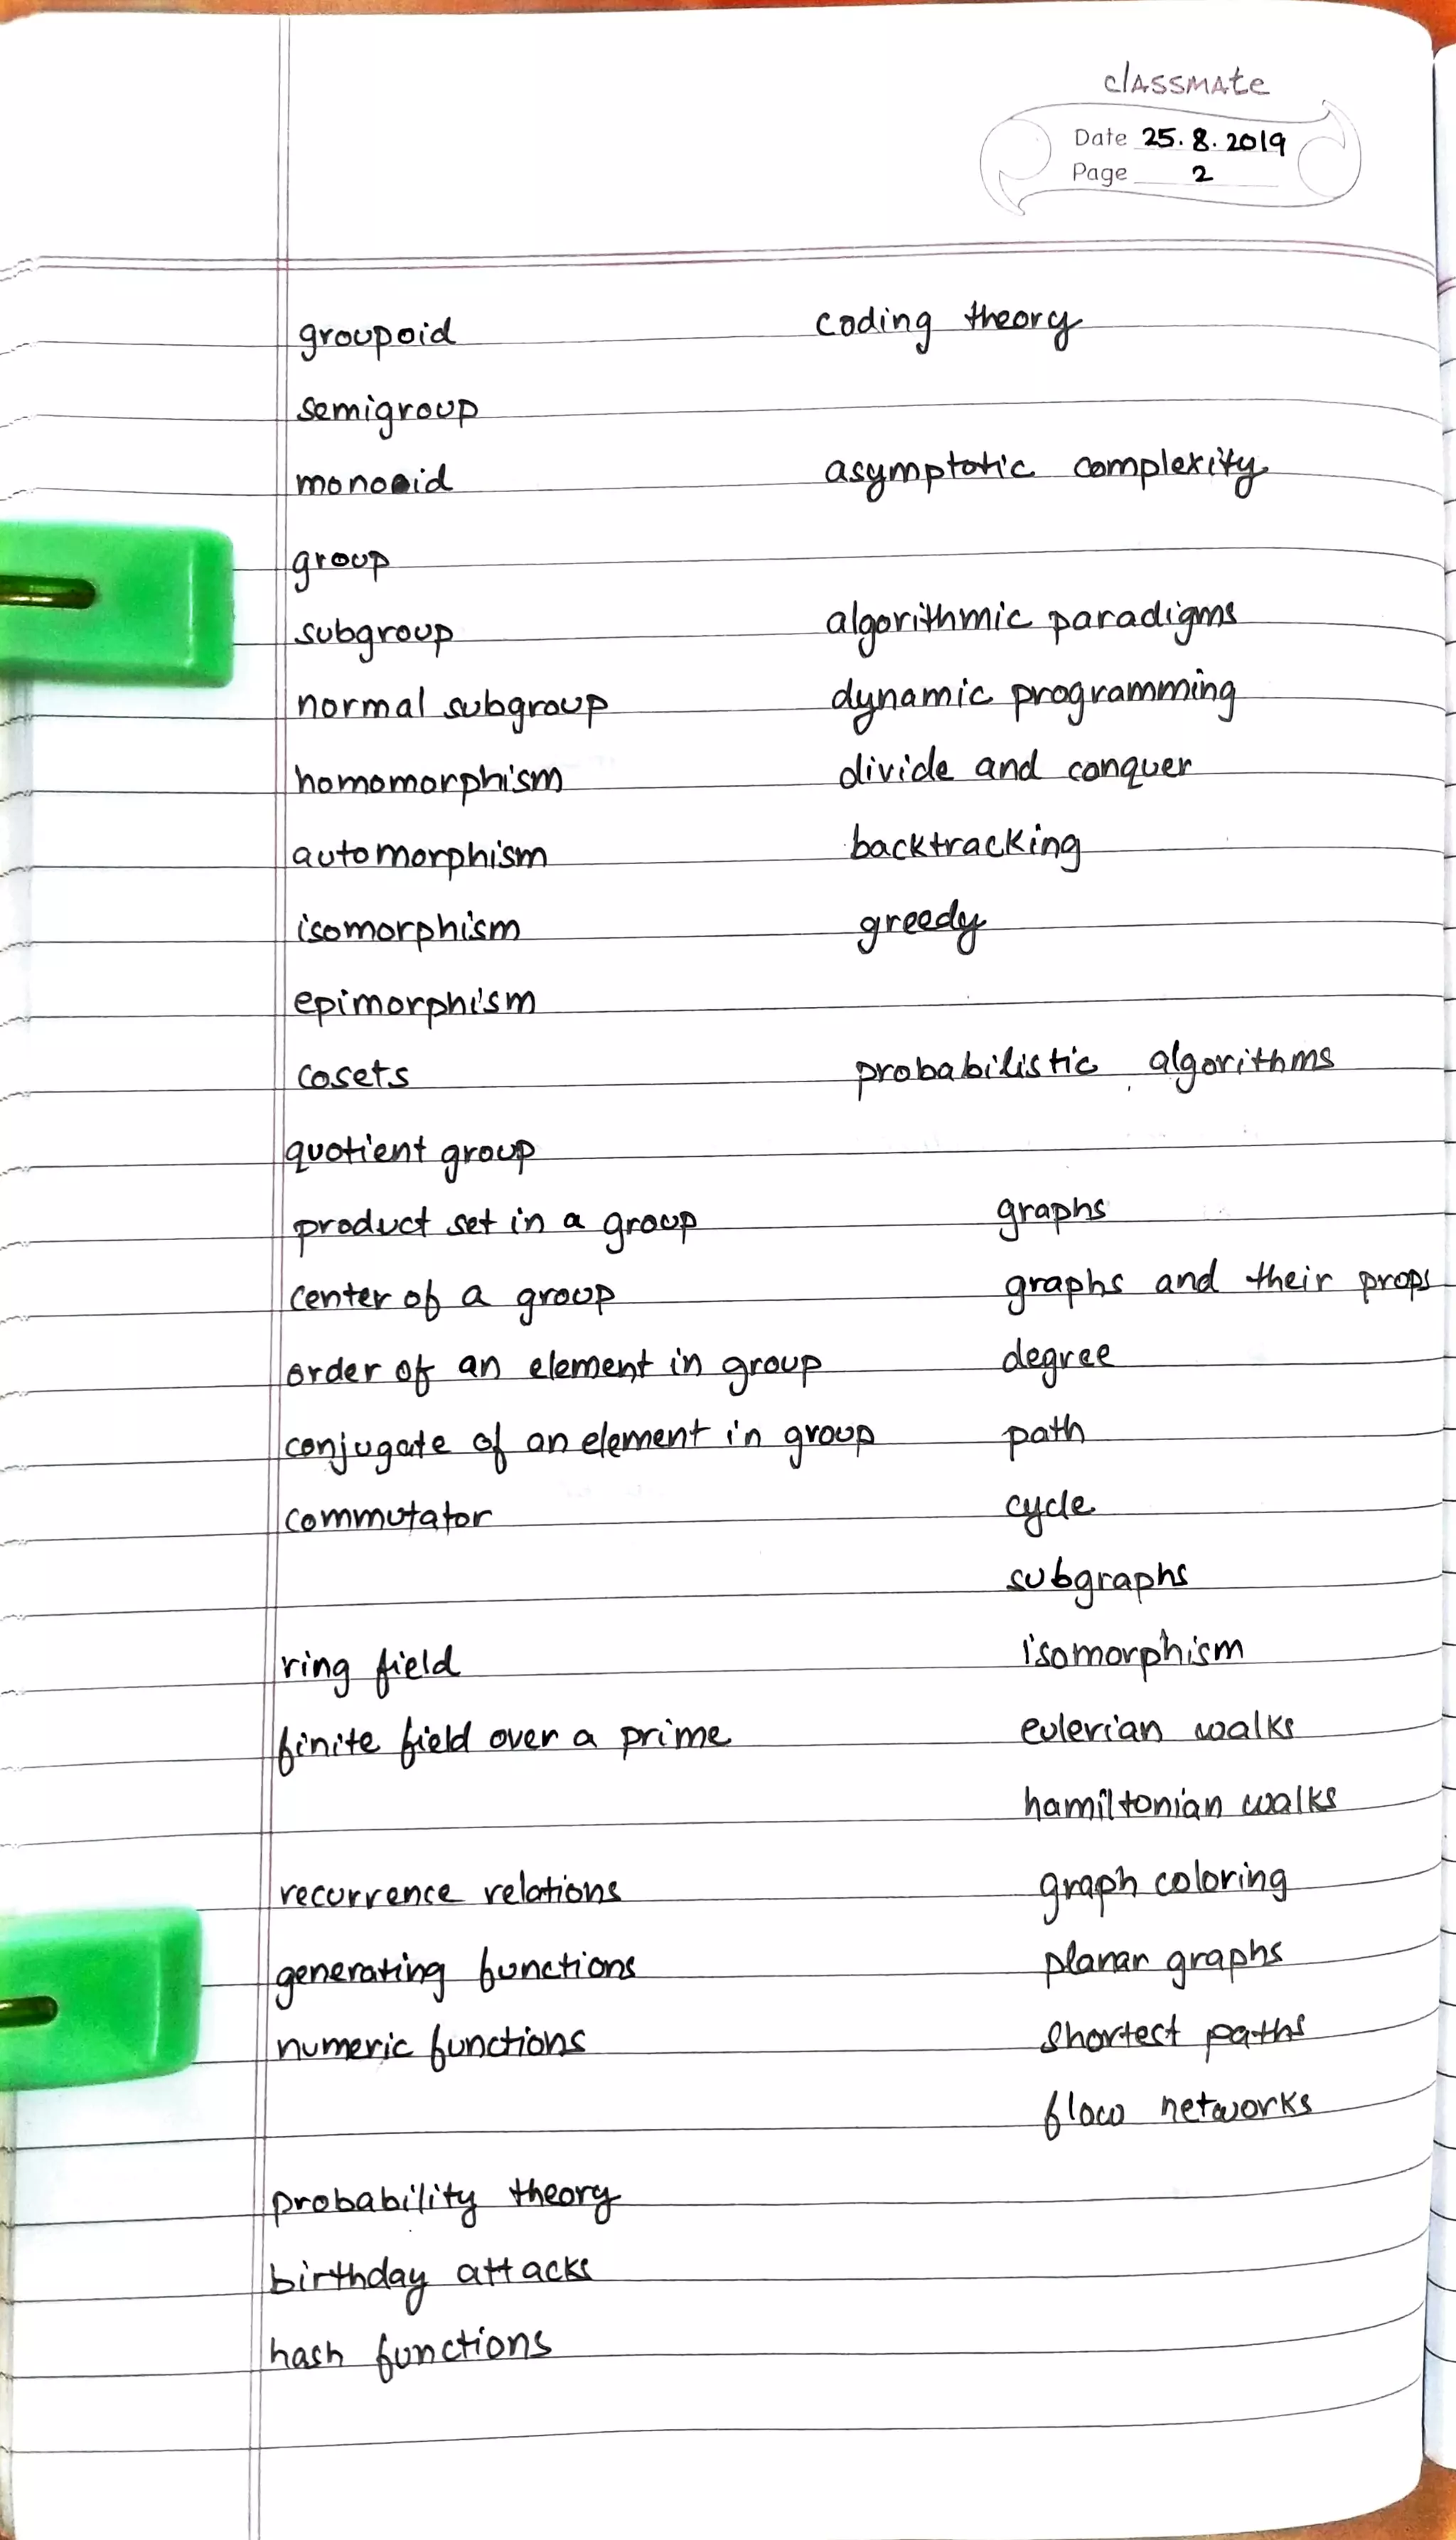 classmate
Date 25.8.2019
Page 2
groupoid
semigroup
monooid
group
subgroup
normal subgroup
homomorphism
automorphism
isomorphism
epimorphism
cosets
quotient group
product set in a group
center of a group
order of an element in group
conjugate of an element in group
commutator
ring field
finite field over a prime
recurrence relations
generating functions
numeric functions
probability theory
birthday attacks
hash functions
coding theory
asymptotic complexity
algorithmic paradigms
dynamic programming
divide and conquer
backtracking
greedy
probabilistic algorithms
graphs
graphs and their props
degree
path
cycle
subgraphs
isomorphism
eulerian walks
hamiltonian walks
graph coloring
planar graphs
shortest paths
flow networks